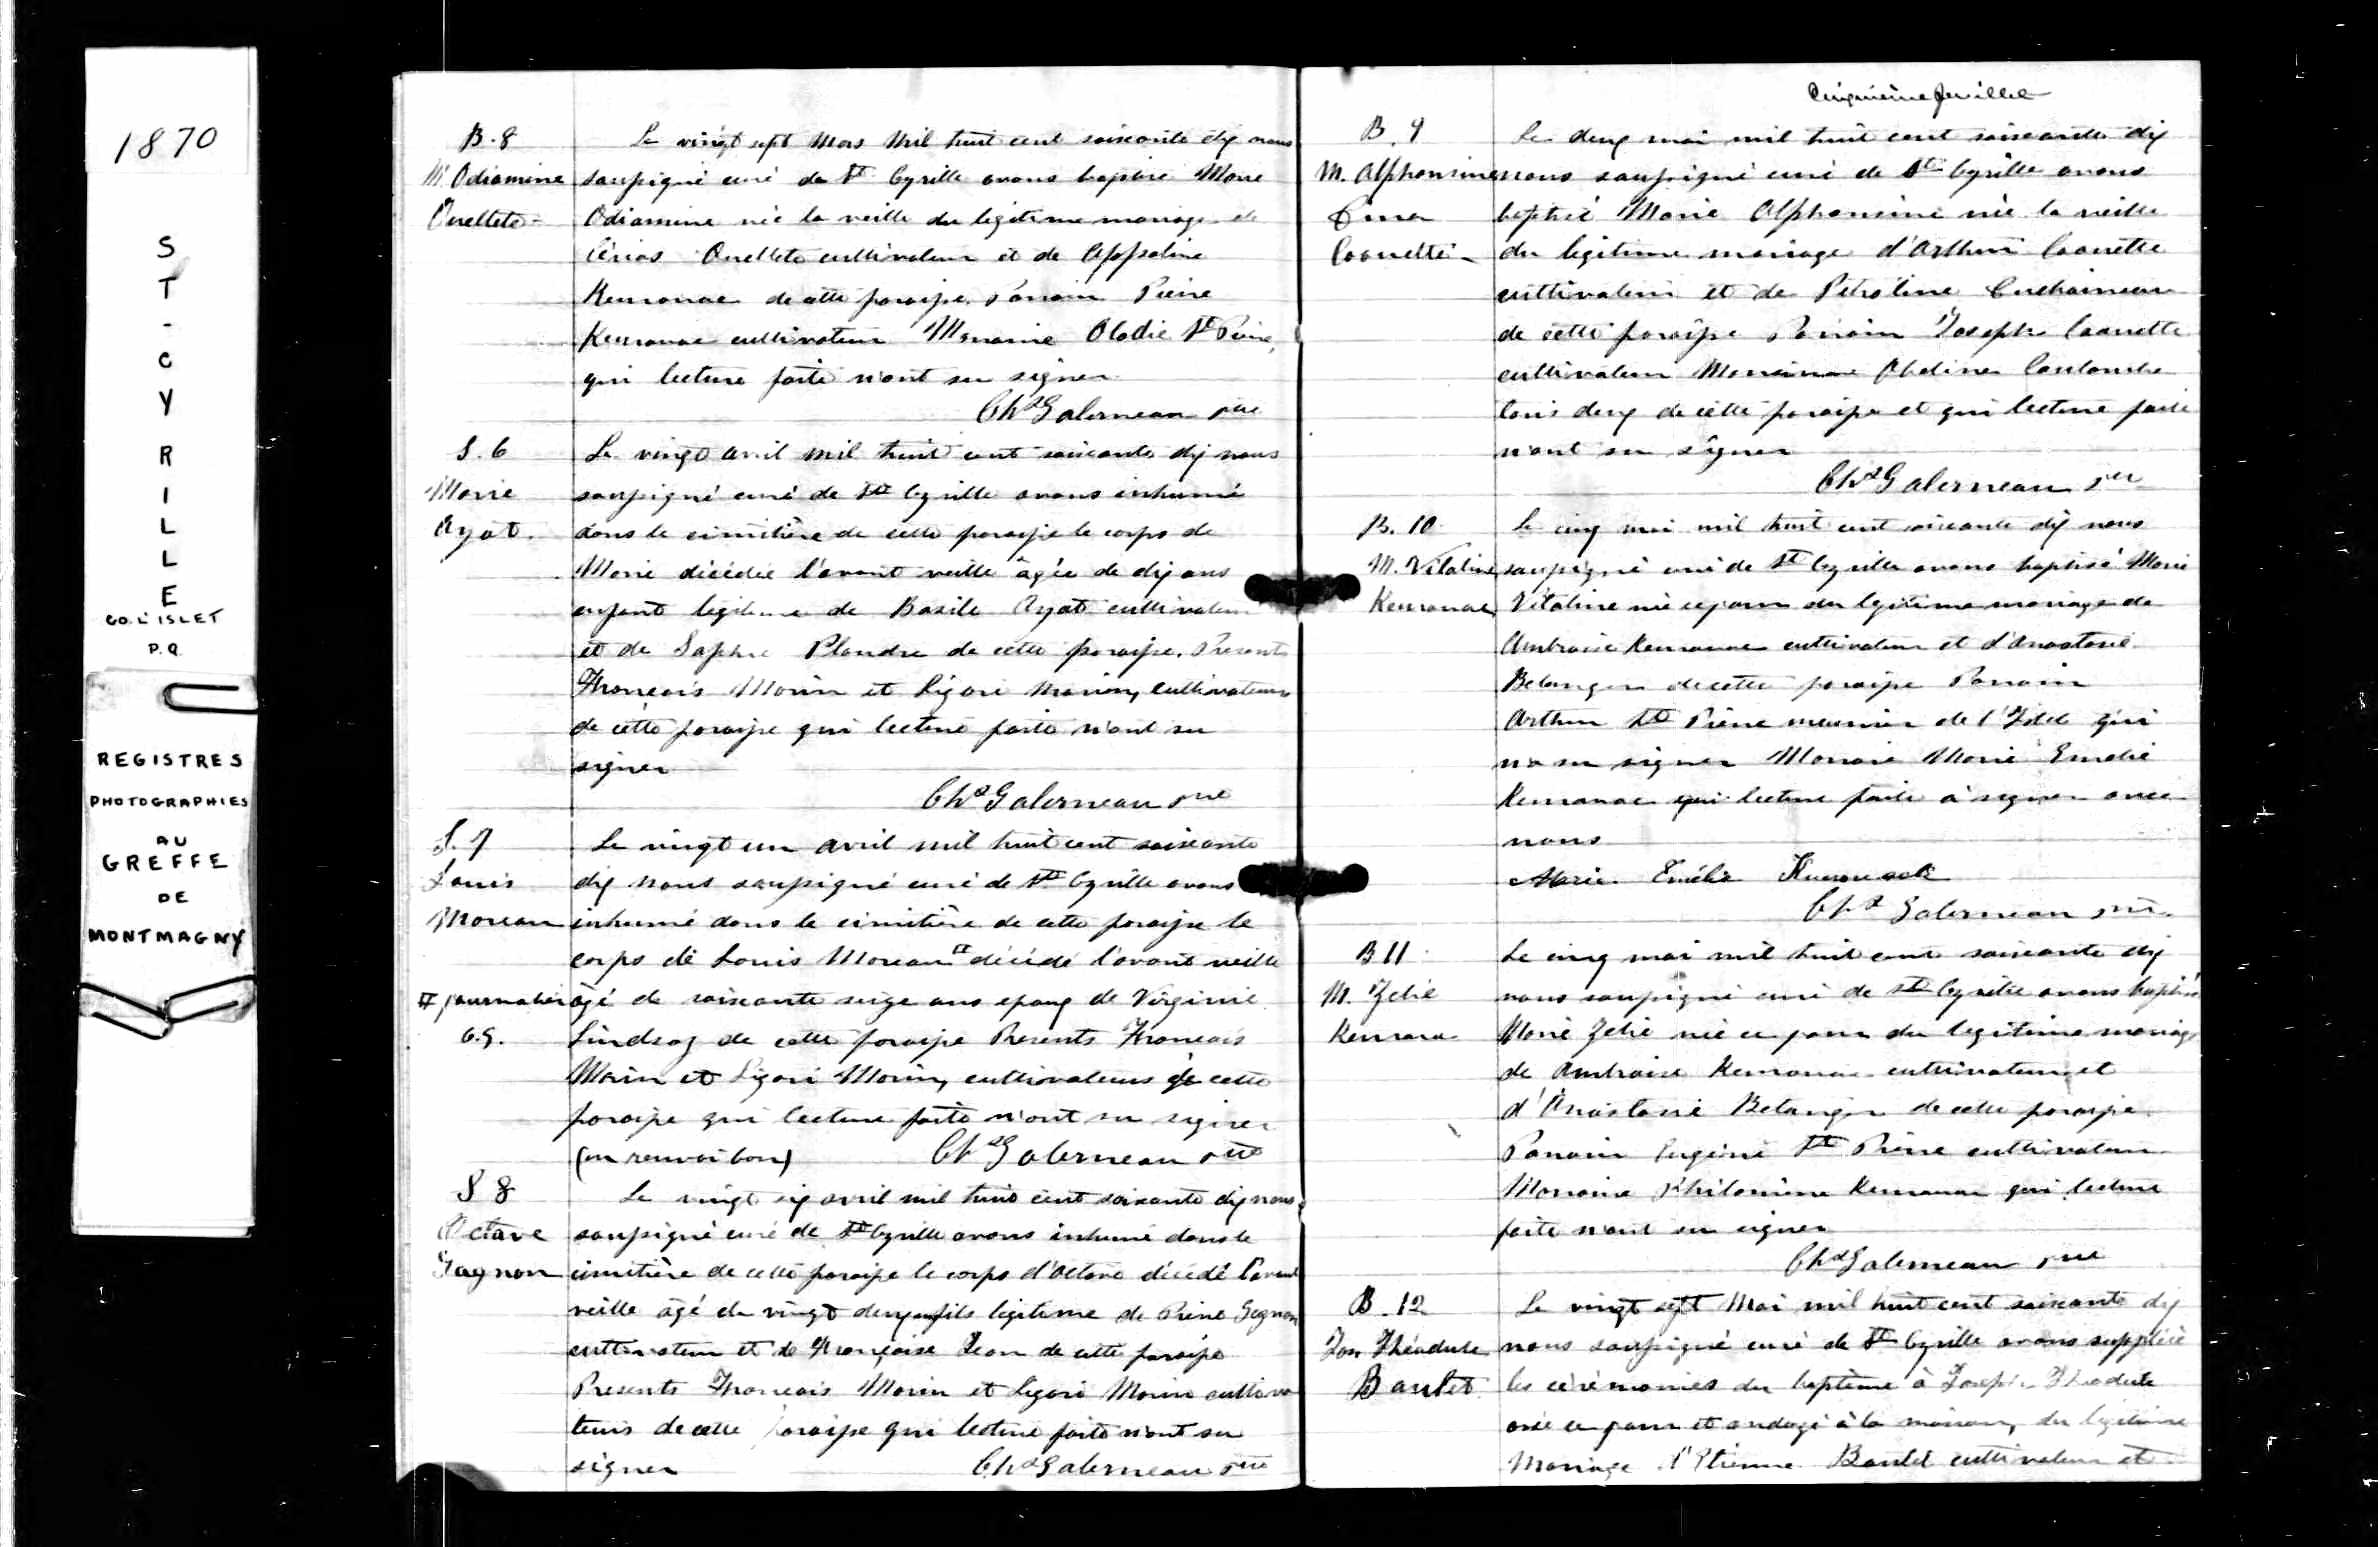 1870
ST-CYRILLE
CO. L'ISLET
P.Q.
REGISTRES
PHOTOGRAPHIES
AU
GREFFE
DE
MONTMAGNY
B.8
M Odiamine
Ouellete
Le vingt sept Mars Mil huit cent soixante dix nous
soussigné curé de St Cyrille avons baptisé Marie
Odiamine née la veille du legitime mariage de
Ouellete cultivateur et de Appoline
Kerouac de cette paroisse. Parrain Pierre
Kerouac cultivateur Marraine Elodie St Pierre,
qui lecture faite n'ont su signer
Chs Galerneau ptre
S.6
Marie
Ayot.
Le vingt avril mil huit cent soixante dix nous
soussigné curé de St Cyrille avons inhumé
dans le cimitière de cette paroisse le corps de
Marie décédée l'avant veille âgée de dix ans
enfant légitime de Basile Ayot cultivateur
et de Sophie Plandre de cette paroisse. Presents
François Morin et Ligori Morin, cultivateurs
de cette paroisse qui lecture faite n'ont su
signer
Chs Galerneau ptre
S.7
Louis
Moreau
# journalier
C.G.
Le vingt un avril mil huit cent soixante
dix nous soussigné curé de St Cyrille avons
inhumé dans le cimitière de cette paroisse le
corps de Louis Moreau # décédé l'avant veille
âgé de soixante seize ans epoux de Virginie
Lindsay de cette paroisse Presents François
Morin et Ligori Morin, cultivateurs de cette
paroisse qui lecture faite n'ont su signer
(un renvoi bon) Chs Galerneau ptre
S 8
Octave
Gagnon
Le vingt six avril mil huit cent soixante dix nous
soussigné curé de St Cyrille avons inhumé dans le
cimitière de cette paroisse le corps d'Octave décédé l'avant
veille âgé de vingt deux ans fils legitime de Pierre Gagnon
cultivateur et de Françoise Jean de cette paroisse
Presents François Morin et Ligori Morin cultiva
teurs de cette paroisse qui lecture faite n'ont su
signer Chs Galerneau ptre
Cinquième feuillet
B.9
M. Alphonsine
Caouette
Le deux mai mil huit cent soixante dix
nous soussigné curé de St Cyrille avons
baptisé Marie Alphonsine née la veille
du legitime mariage d'Arthur Caouette
cultivateur et de
de cette paroisse Parrain Joseph Caouette
cultivateur Marraine Coulombe
tous deux de cette paroisse et qui lecture faite
n'ont su signer
Chs Galerneau ptre
B.10
M. Vitaline
Kerouac
Le cinq mai mil huit cent soixante dix nous
soussigné curé de St Cyrille avons baptisé Marie
Vitaline née ce jour du legitime mariage de
Ambroise Kerouac cultivateur et d'Anastasie
Belanger de cette paroisse Parrain
Arthur St Pierre meunier de l'Islet qui
n'a su signer Marraine Marie Emelie
Kerouac qui lecture faite a signer avec
nous
Marie Emélie Kerouack
Chs Galerneau ptre
B 11
M. Zelie
Kerouac
Le cinq mai mil huit cent soixante dix
nous soussigné curé de St Cyrille avons baptisé
Marie Zelie née ce jour du legitime mariage
de Ambroise Kerouac cultivateur et
d'Anastasie Belanger de cette paroisse
Parrain Eugène St Pierre cultivateur
Marraine Philomène Kerouac qui lecture
faite n'ont su signer
Chs Galerneau ptre
B.12
Jos Théodule
Boulet
Le vingt sept Mai mil huit cent soixante dix
nous soussigné curé de St Cyrille avons supplée
les cérémonies du baptême à Joseph Théodule
née ce jour et ondoyé à la maison, du legitime
Mariage d'Etienne Boulet cultivateur et